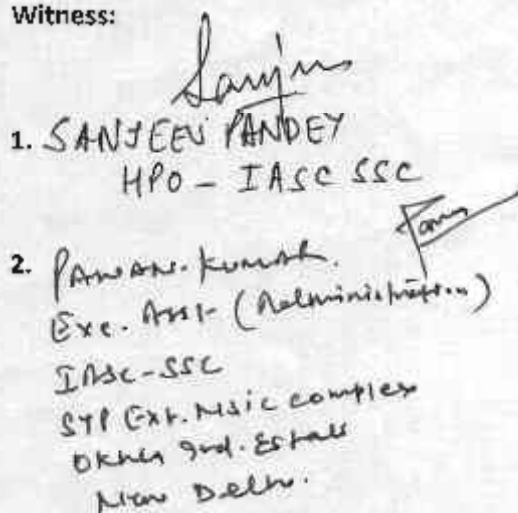 Witness:
Sanjeev
1. SANJEEV PANDEY
HPO - IASC SSC
2. PAWAN. KUMAR.
Exe. Asst- (Administration)
IASC-SSC
STP Ext. NSIC complex
Okhla Ind. Estate
New Delhi.